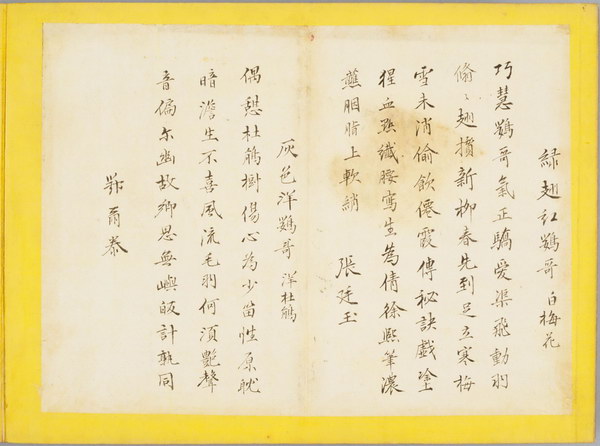 綠翅紅鸚哥 白梅花
巧慧鸚哥氣正驕愛渠飛動羽
翛〻翅攢新柳春先到足立寒梅
雪未消偷飲僊霞傳秘訣戲塗
猩血強纖腰寫生為倩徐熙筆濃
蘸胭脂上軟綃
張廷玉
灰色洋鸚哥 洋杜鵑
偶憩杜鵑樹傷心為少苗性原耽
暗澹生不喜風流毛羽何須艷聲
音偏尔幽故鄉思無嶼皈計孰同
鄂爾泰